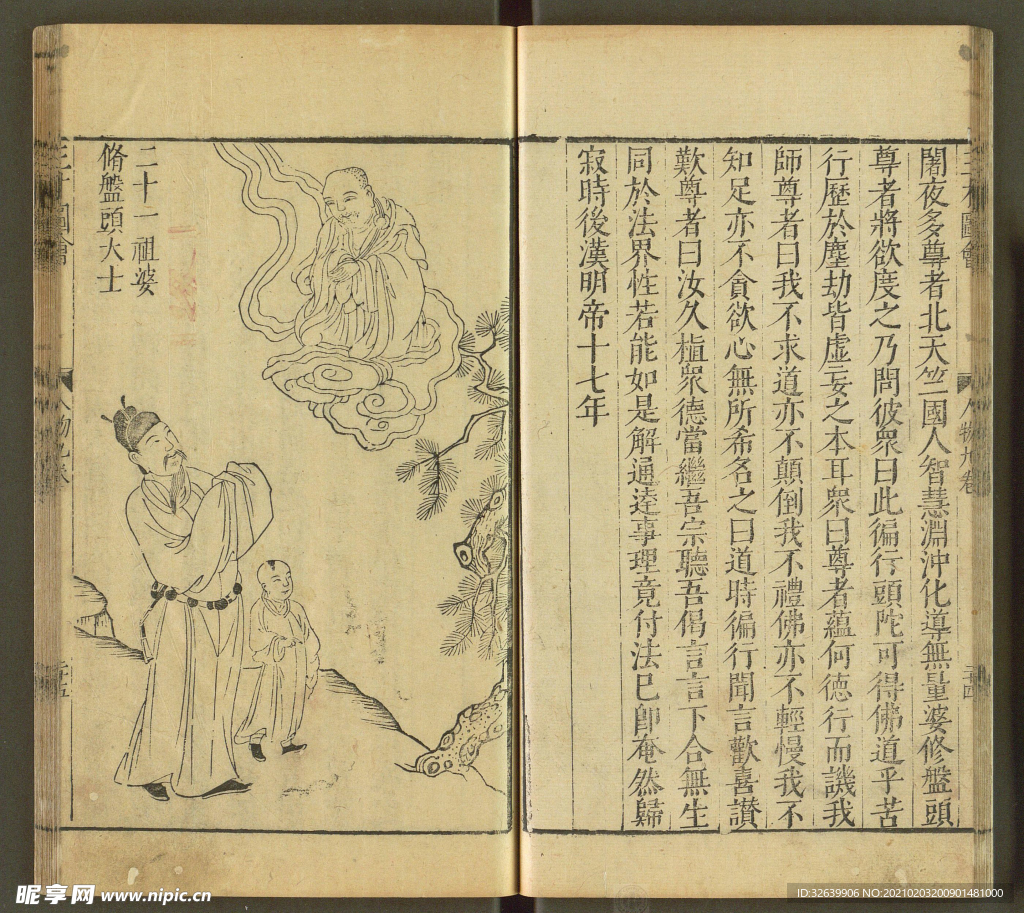 闍夜多尊者北天竺國人智慧淵沖化導無量婆修盤頭
尊者將欲度之乃問彼衆曰此徧行頭陀可得佛道乎苦
行歷於塵劫皆虛妄之本耳衆曰尊者蘊何德行而譏我
師尊者曰我不求道亦不顛倒我不禮佛亦不輕慢我不
知足亦不貪欲心無所希名之曰道時徧行聞言歡喜讃
歎尊者曰汝久植衆德當繼吾宗聽吾偈言言下合無生
同於法界性若能如是解通逹事理竟付法巳卽奄然歸
寂時後漢明帝十七年
二十一祖婆
脩盤頭大士
三才圖會
人物九卷
二十四
昵享网 www.nipic.cn
ID:32639906 NO:20210203200901481000